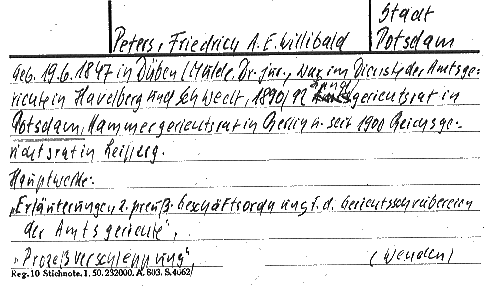 Stadt
Peters, Friedrich A.E. Willibald Potsdam
geb. 19.6.1847 in Düben / Mulde. Dr. jur., war im Dienst der Amtsge-
richte in Havelberg und Schwedt, 1890/92 gerichtsrat in
Potsdam, Kammergerichtsrat in Berlin u. seit 1900 Reichsge-
richtsrat in Leipzig.
Hauptwerke:
"Erläuterungen z. preuß. Geschäftsordnung f. d. Gerichtsschreibereien
der Amtsgerichte",
"Prozeßverschleppung", (Wenden)
Reg. 10 Stichnote. 1. 50. 232000. A. 803. S. 4062